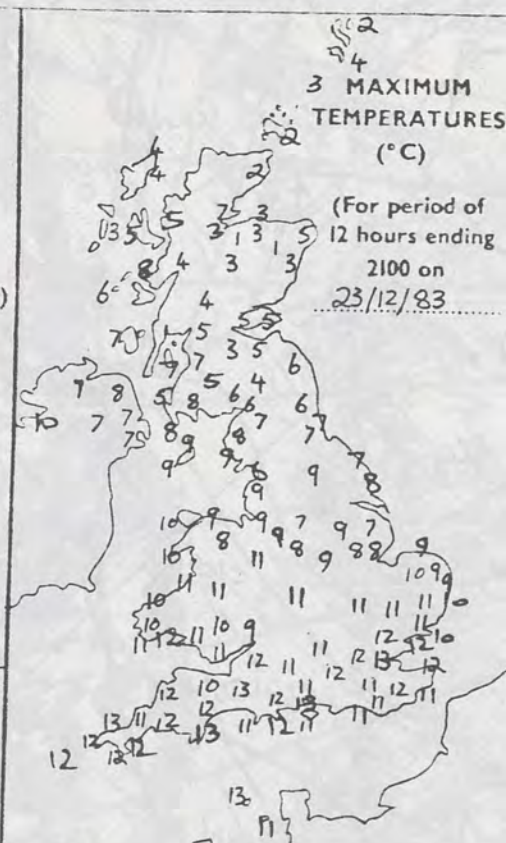 2
4
3 MAXIMUM
TEMPERATURES
(°C)
2
(For period of
12 hours ending
2100 on
23/12/83
4
4 2
5 7 3
3 5 3 1 3 5
1
8 4 3 3
6
4
7 5 5 5
3 5 6
7 7
5 4
9 8 5 8 6 6 6
10 7 7 7
7 8 8 7 7
9 9 7
9 6 9 8
9
10 9 9 7 9 7
8 9 8 8 8 9
10 11 9 10 9
9
11 11 11 11 11 11
10
10 10 9 11
11 12 11 11 12 12 10
12 11 11 12 12 13 12
12 10 13 12 11 11 12 11
13 11 12 12 13 11 12 11 11 11
12 12 12 12
13